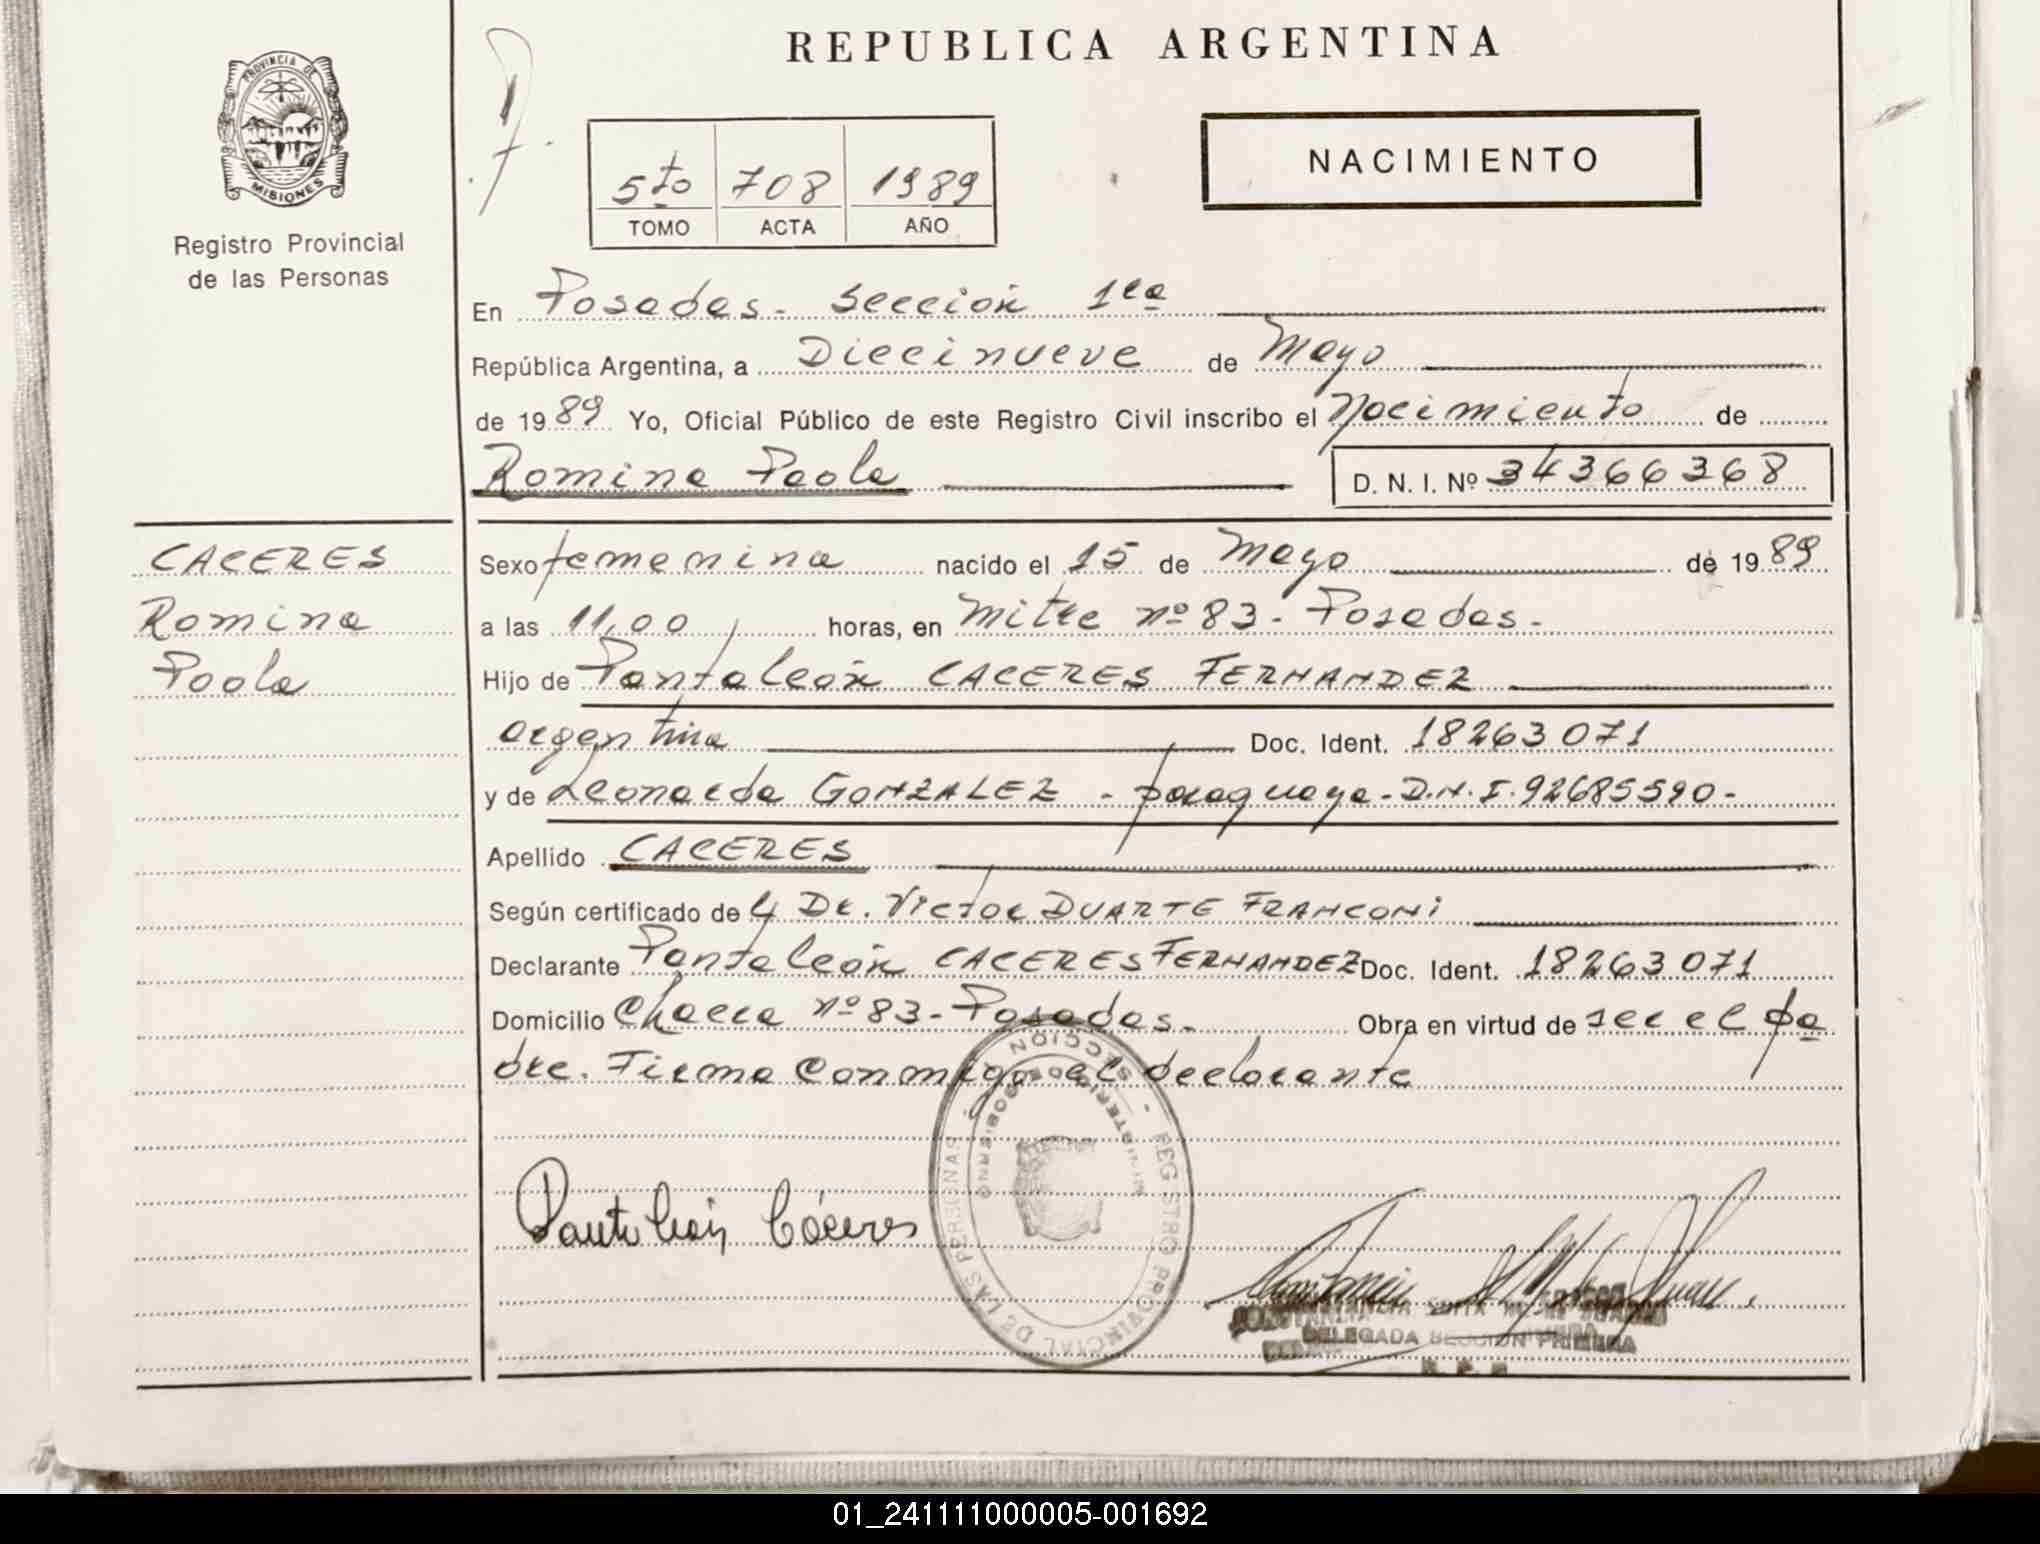 REPUBLICA ARGENTINA
PROVINCIA DE
MISIONES
Registro Provincial
de las Personas
NACIMIENTO
5to 708 1989
TOMO ACTA AÑO
En Posadas - Sección 1ra
República Argentina, a Diecinueve de Mayo
de 1989 Yo, Oficial Público de este Registro Civil inscribo el Nacimiento de
Romina Paola D. N. I. Nº 34366368
CACERES
Romina
Paola
Sexo femenina nacido el 15 de Mayo de 1989
a las 11,00 horas, en Mitre nº 83 - Posadas -
Hijo de Pantaleón CACERES FERNANDEZ
argentina Doc. Ident. 18263071
y de Leonarda GONZALEZ - paraguaya - D.N.I. 92685590 -
Apellido CACERES
Según certificado de Dr. Victor DUARTE FRANCONI
Declarante Pantaleón CACERES FERNANDEZ Doc. Ident. 18263071
Domicilio Chacra nº 83 - Posadas - Obra en virtud de ser el pa
dre. Firma conmigo el declarante
REGISTRO PROVINCIAL DE LAS PERSONAS
Pantaleón Cáceres
DELEGADA SECCION PRIMERA
R. P. P.
01_241111000005-001692